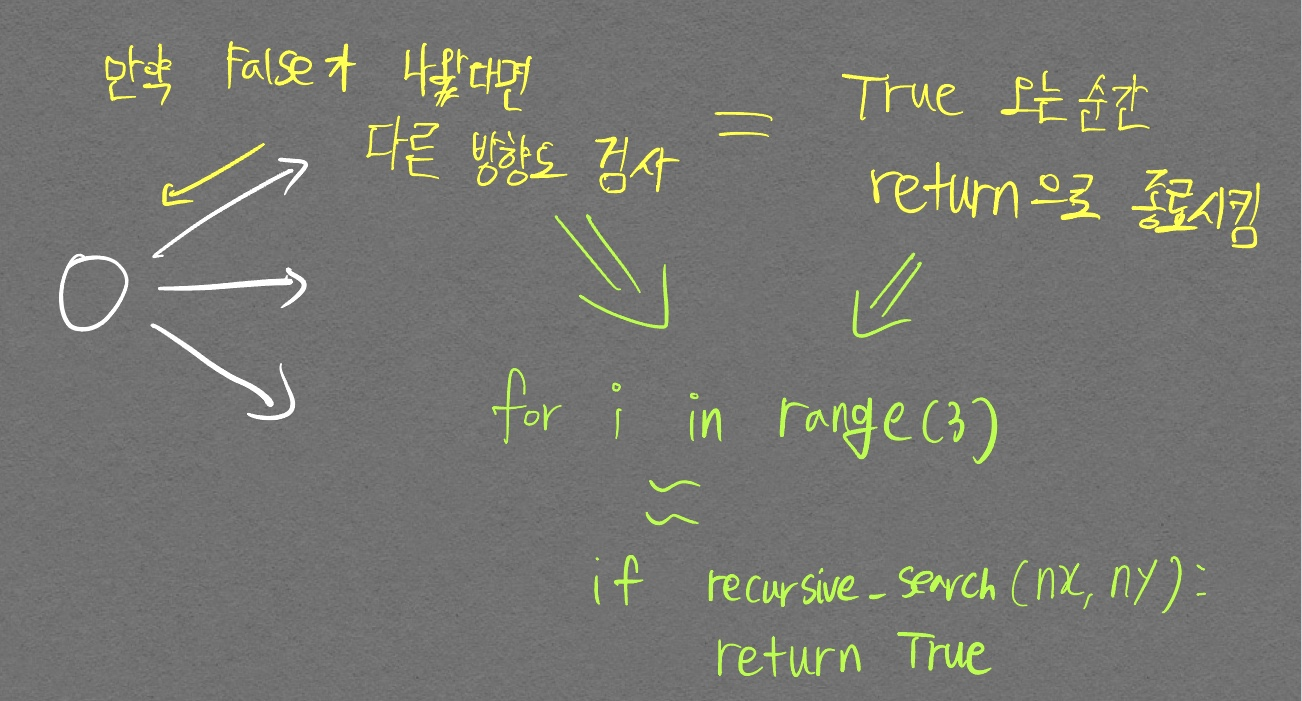 만약 False가 나왔다면
다른 방향도 검사
=
True 오는 순간
return으로 종료시킴
for i in range(3)
if recursive_search(nx, ny):
return True